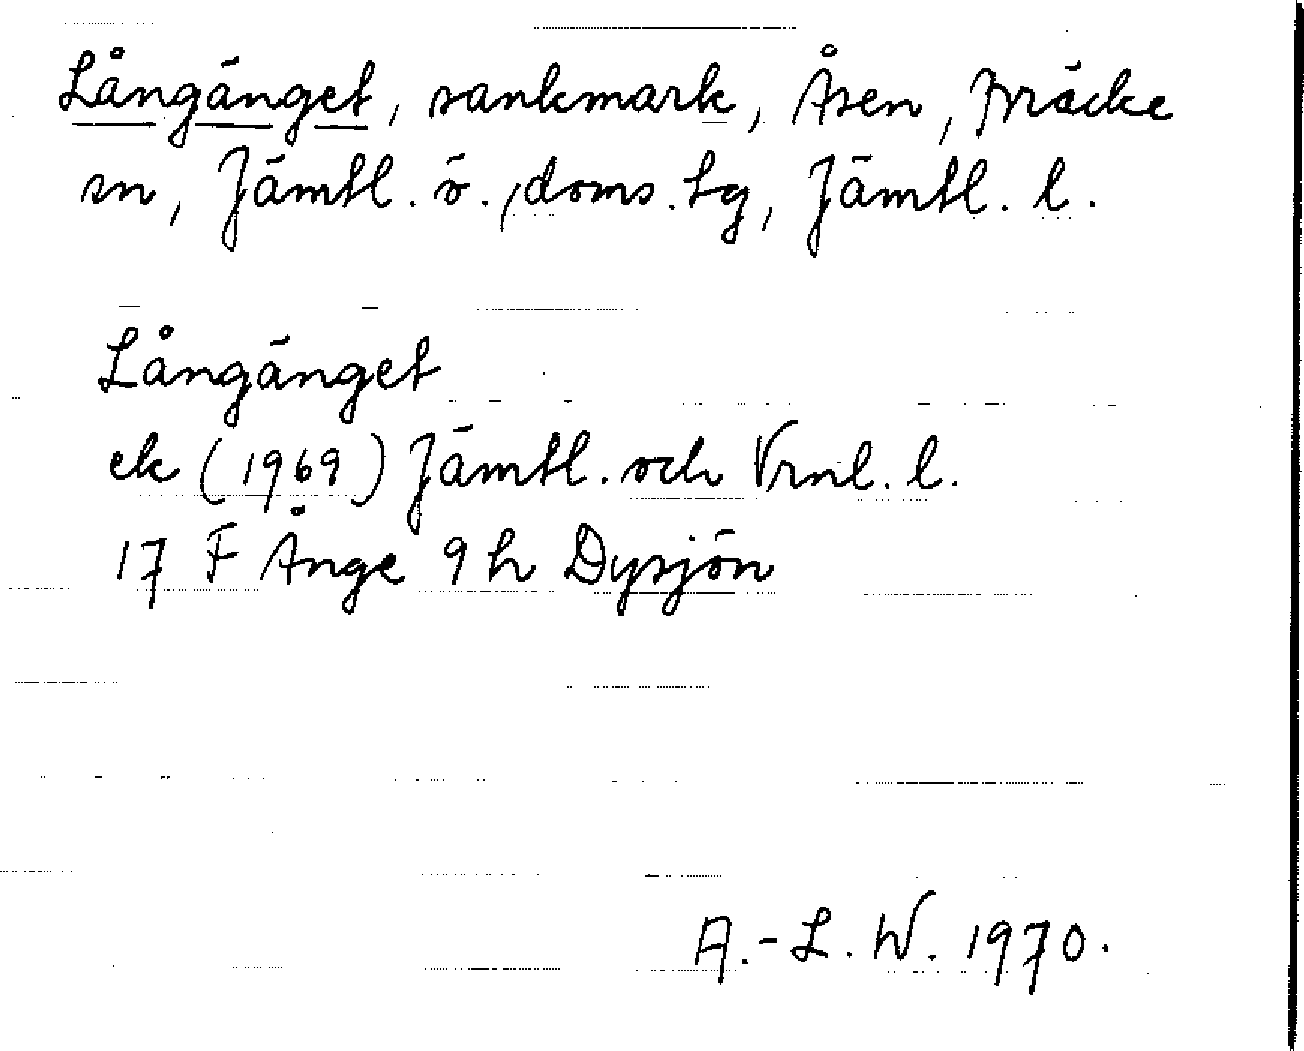 Långänget, sankmark, Åsen, Bräcke
sn, Jämtl. ö., doms. tg, Jämtl. l.
Långänget
ek (1969) Jämtl. och Vrnl. l.
17 F Ånge 9 h Dysjön
A.-L. W. 1970.